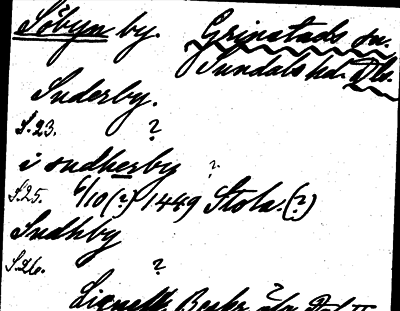 Söbyn by. Grinstads sn.
Sundals hd. Dls.
Suderby.
S. 23. ?
i sudherby ?
S. 25. 6/10 (?) 1449 Stola. (?)
Sudhby
S. 26. ?